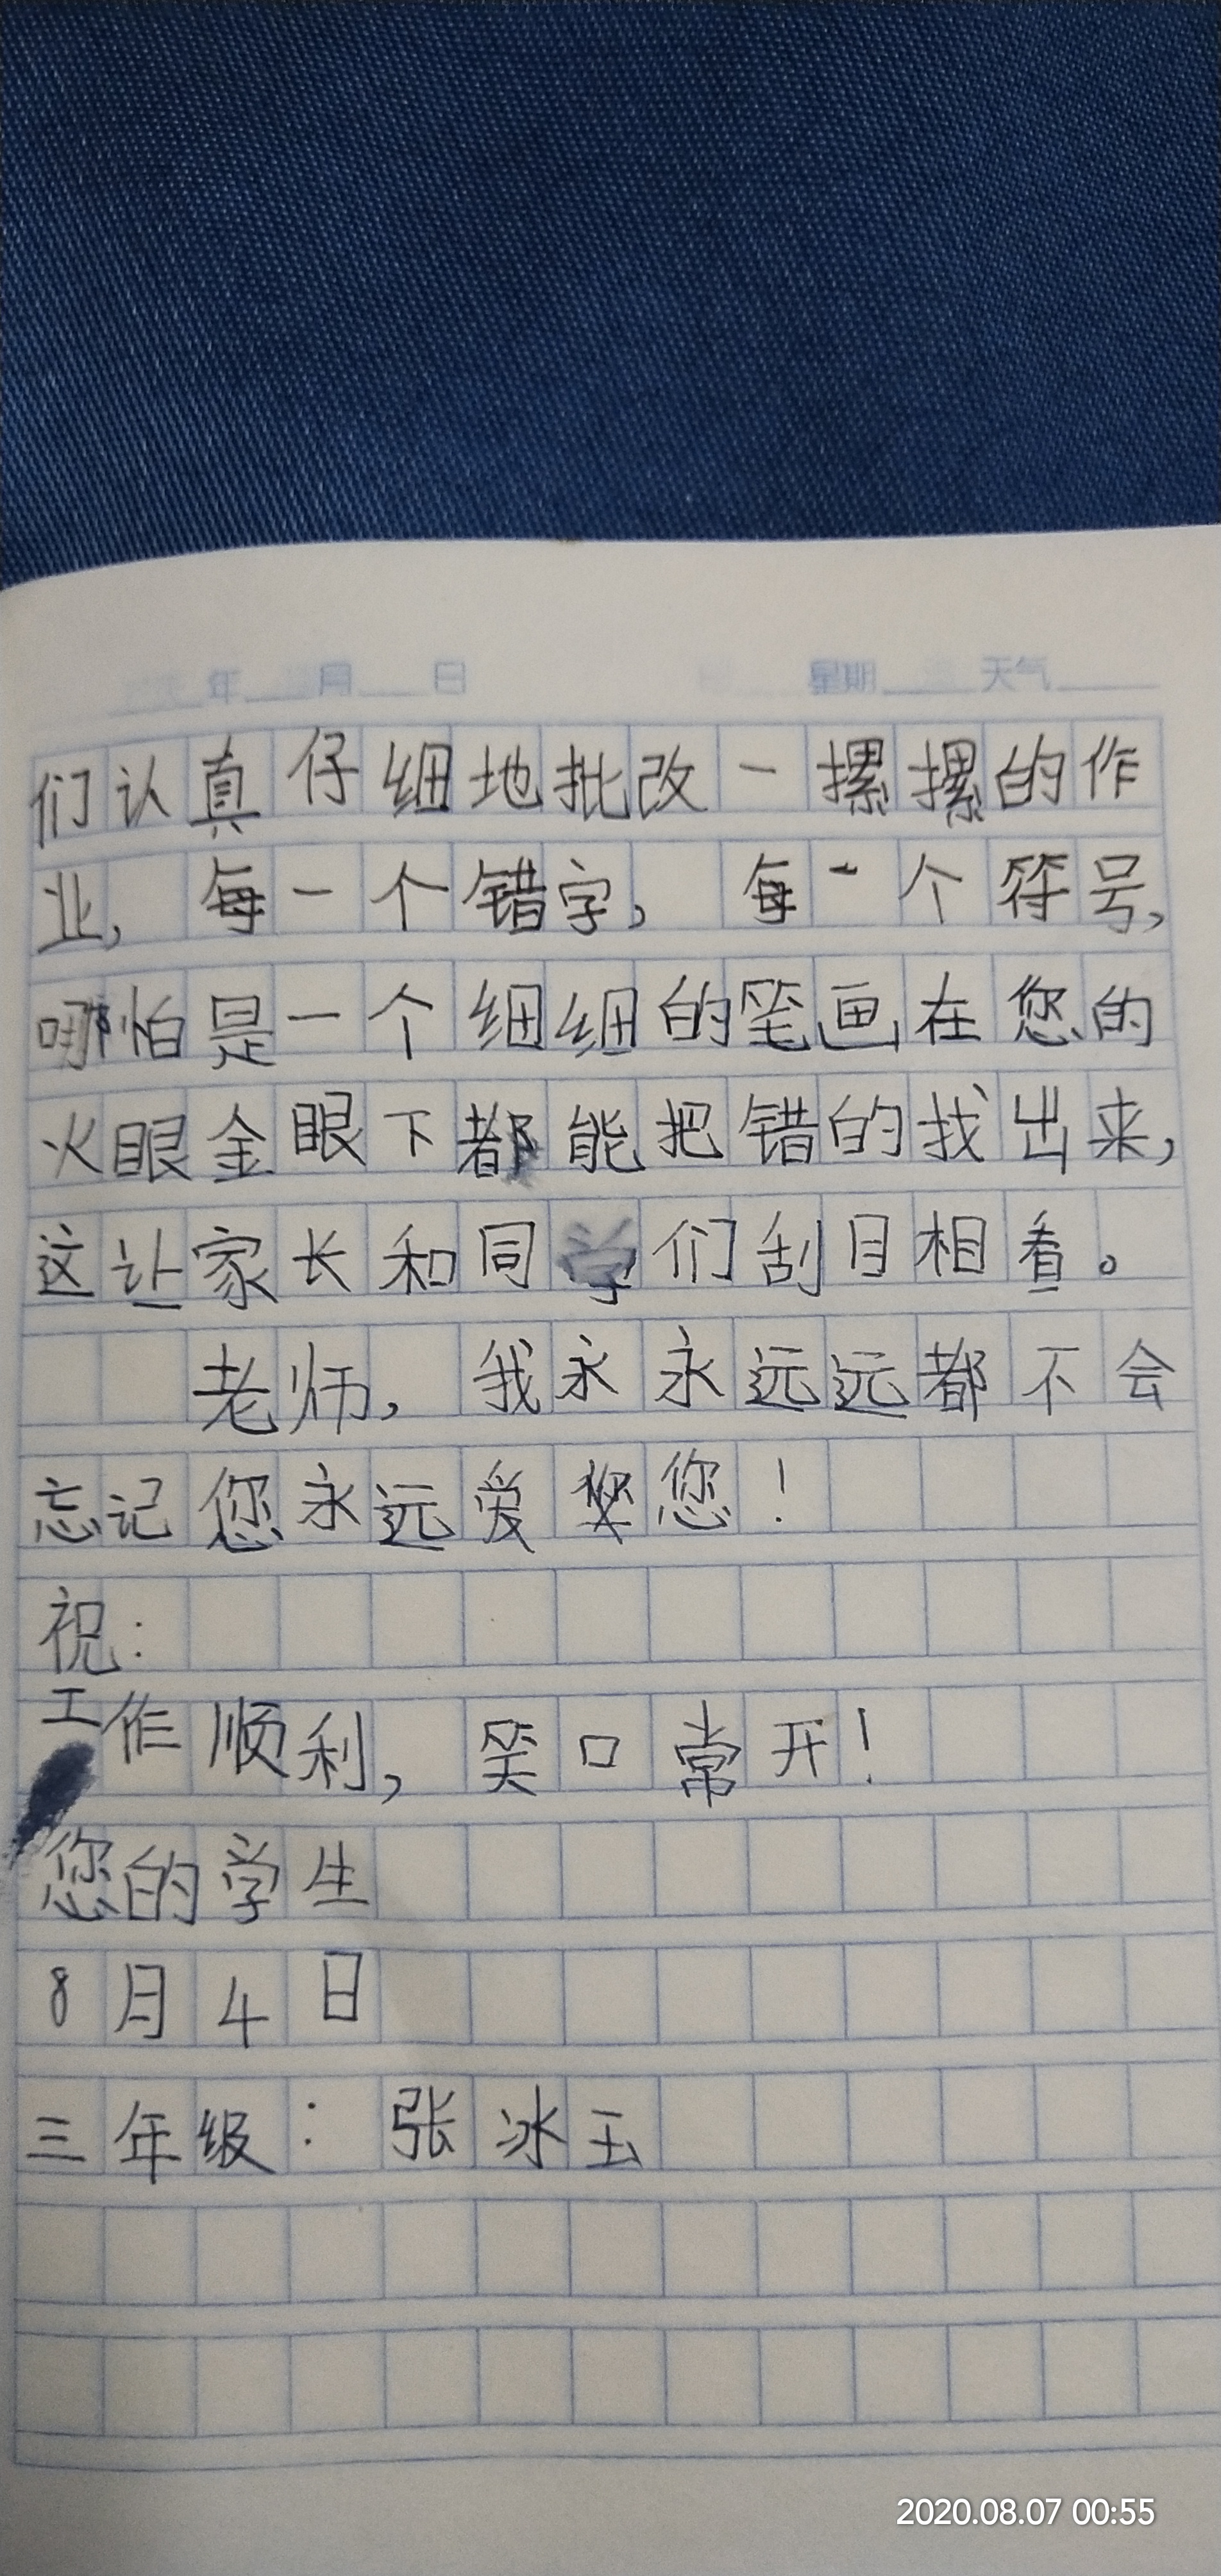 年 月 日 星期 天气
们认真仔细地批改一摞摞的作
业，每一个错字，每一个符号，
哪怕是一个细细的笔画在您的
火眼金眼下都能把错的找出来，
这让家长和同学们刮目相看。
老师，我永永远远都不会
忘记您永远爱您！
祝：
工作顺利，笑口常开！
您的学生
8月4日
三年级：张冰玉
2020.08.07 00:55